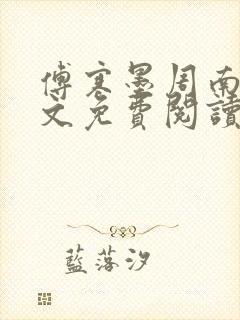 傅寒墨周南
文免費閱讀
藍落汐